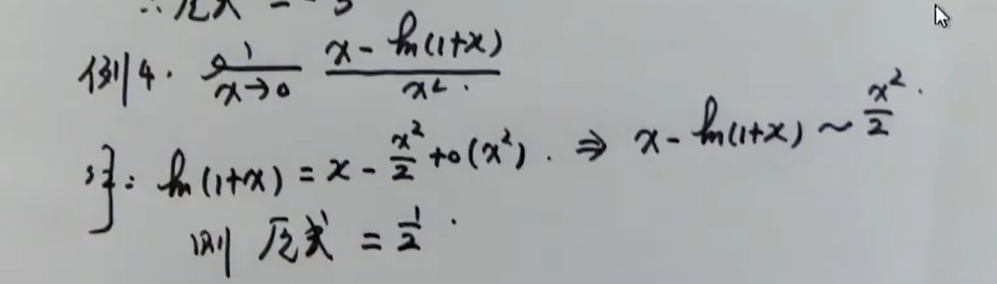 ∴ 原式 =
例4. lim x→0 (x - ln(1+x))/x².
解: ln(1+x) = x - x²/2 + o(x²). ⇒ x - ln(1+x) ~ x²/2.
则 原式 = 1/2.